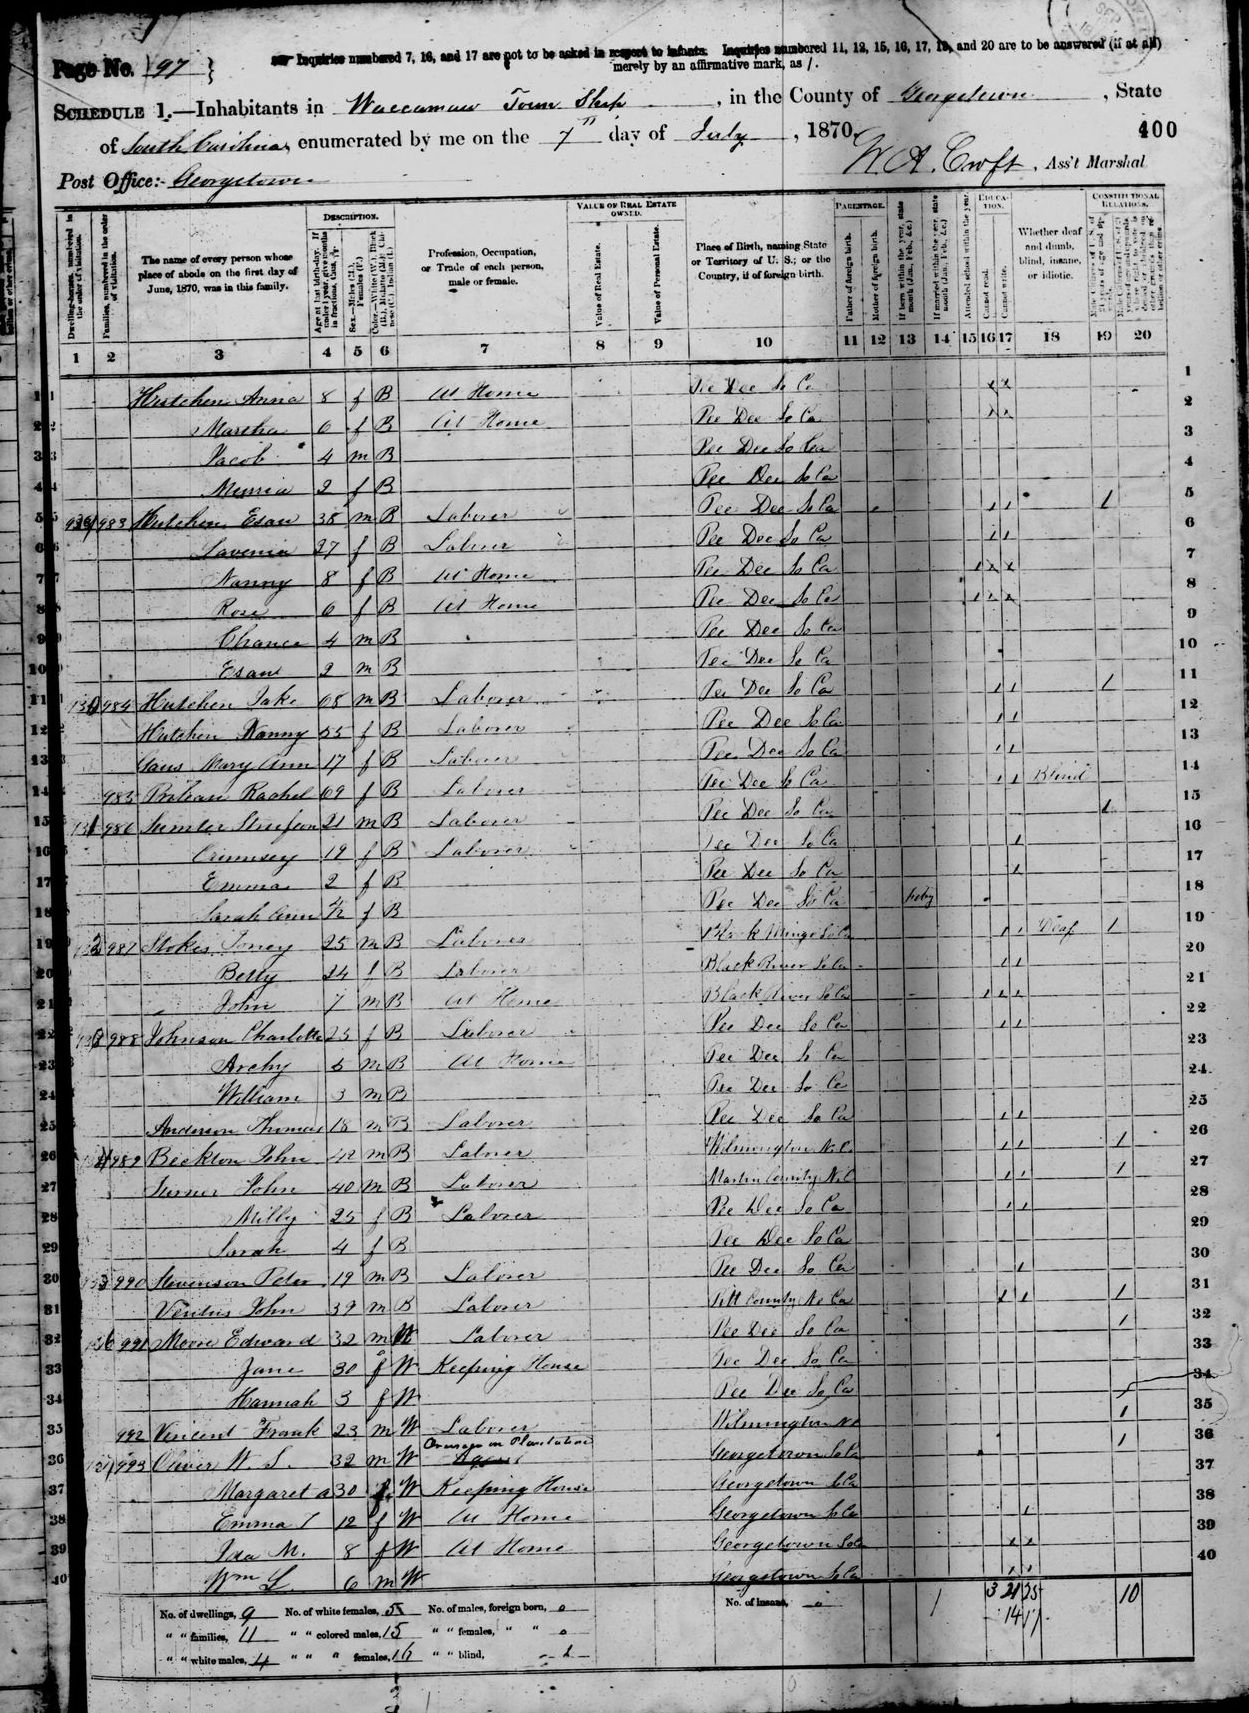 Page No. 97
Inquiries numbered 7, 16, and 17 are not to be asked in respect to infants. Inquiries numbered 11, 12, 15, 16, 17, 19, and 20 are to be answered (if at all)
merely by an affirmative mark, as /.
SCHEDULE 1.—Inhabitants in Waccamaw Town Ship, in the County of Georgetown, State
of South Carolina, enumerated by me on the 7th day of July, 1870.
400
Post Office:- Georgetown
W. A. Croft, Ass't Marshal
Dwelling-houses, numbered in the order of visitation.
Families, numbered in the order of visitation.
The name of every person whose place of abode on the first day of June, 1870, was in this family.
DESCRIPTION.
Sex.—Males (M.), Females (F.)
Profession, Occupation, or Trade of each person, male or female.
VALUE OF REAL ESTATE OWNED.
Value of Real Estate.
Value of Personal Estate.
Place of Birth, naming State or Territory of U. S.; or the Country, if of foreign birth.
PARENTAGE.
Father of foreign birth.
Mother of foreign birth.
If born within the year, state month (Jan., Feb., &c.)
If married within the year, state month (Jan., Feb., &c.)
Attended school within the year.
EDUCATION.
Cannot read.
Cannot write.
Whether deaf and dumb, blind, insane, or idiotic.
CONSTITUTIONAL RELATIONS.
1 2 3 4 5 6 7 8 9 10 11 12 13 14 15 16 17 18 19 20
1 Hutchen Anna 8 f B At Home Pee Dee So Ca 1
2 Martha 6 f B At Home Pee Dee So Ca 2
3 Jacob 4 m B Pee Dee So Ca 3
4 2 f B Pee Dee So Ca 4
5 983 Hutchen Esau 38 m B Laborer Pee Dee So Ca 5
6 Lavenia 27 f B Laborer Pee Dee So Ca 6
7 Nanny 8 f B At Home Pee Dee So Ca 7
8 Rose 6 f B At Home Pee Dee So Ca 8
9 Chance 4 m B Pee Dee So Ca 9
10 Esau 2 m B Pee Dee So Ca 10
11 984 Hutchen Jake 68 m B Laborer Pee Dee So Ca 11
12 Hutchen Nanny 55 f B Laborer Pee Dee So Ca 12
13 Mary Ann 17 f B Laborer Pee Dee So Ca 13
14 985 Rachel 69 f B Laborer Pee Dee So Ca Blind 14
15 986 21 m B Laborer Pee Dee So Ca 15
16 19 f B Laborer Pee Dee So Ca 16
17 Emma 2 f B Pee Dee So Ca 17
18 Sarah Ann f B Pee Dee So Ca 18
19 987 Stokes Toney 25 m B Laborer Black Mingo So Ca Deaf 19
20 Betty 24 f B Laborer Black River So Ca 20
21 John 7 m B At Home Black River So Ca 21
22 988 Johnson Charlotte 25 f B Laborer Pee Dee So Ca 22
23 Archy 5 m B At Home Pee Dee So Ca 23
24 William 3 m B Pee Dee So Ca 24
25 Anderson Thomas 18 m B Laborer Pee Dee So Ca 25
26 989 Beckton John 42 m B Laborer Wilmington N.C. 26
27 Turner John 40 m B Laborer Martin County N.C 27
28 Milly 25 f B Laborer Pee Dee So Ca 28
29 Sarah 4 f B Pee Dee So Ca 29
30 990 Stevenson Peter 19 m B Laborer Pee Dee So Ca 30
31 John 39 m B Laborer Pitt County No Ca 31
32 991 Moore Edward 32 m W Laborer Pee Dee So Ca 32
33 Jane 30 f W Keeping House Pee Dee So Ca 33
34 Hannah 3 f W Pee Dee So Ca 34
35 992 Vincent Frank 23 m W Laborer Wilmington N.C 35
36 993 Oliver W. S. 32 m W on Plantation Georgetown So Ca 36
37 Margaret a 30 f W Keeping House Georgetown So Ca 37
38 Emma 12 f W At Home Georgetown So Ca 38
39 Ida M. 8 f W At Home Georgetown So Ca 39
40 Wm L 6 m W Georgetown So Ca 40
No. of dwellings, 9 No. of white females, 5 No. of males, foreign born, 0 No. of insane, 0 1 3 21 25 10
" " families, 11 " " colored males, 15 " " females, " " 0 14 17
" " white males, 4 " " " females, 16 " " blind,